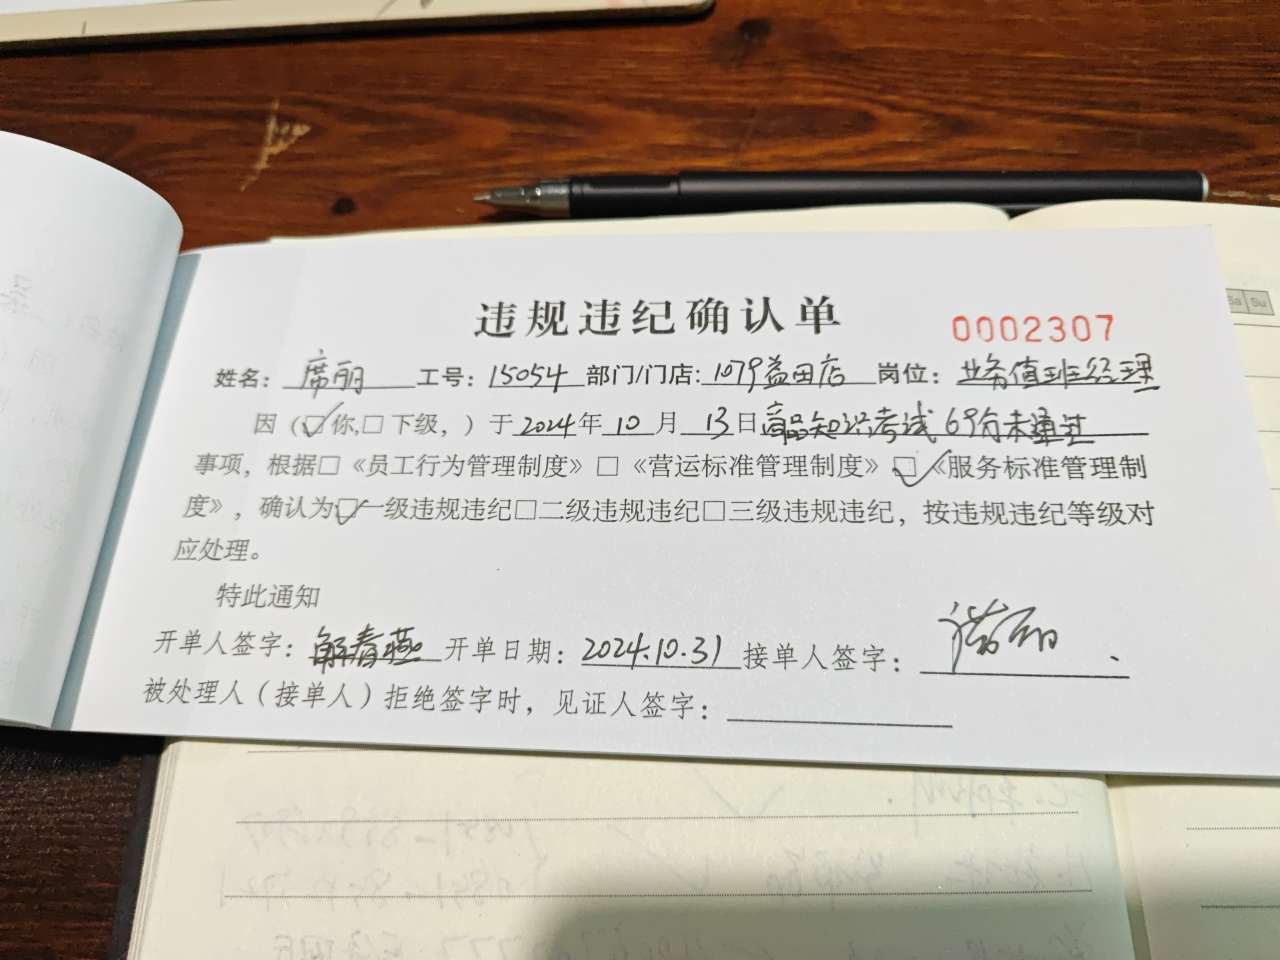 违规违纪确认单
0002307
姓名：席丽 工号：15054 部门/门店：1079益田店 岗位：业务值班经理
因（☑你,□下级，）于2024年10月13日商品知识考试69分未通过
事项，根据□《员工行为管理制度》□《营运标准管理制度》☑《服务标准管理制
度》，确认为☑一级违规违纪□二级违规违纪□三级违规违纪，按违规违纪等级对
应处理。
特此通知
开单人签字：解春燕 开单日期：2024.10.31 接单人签字：
被处理人（接单人）拒绝签字时，见证人签字：
Sa Su